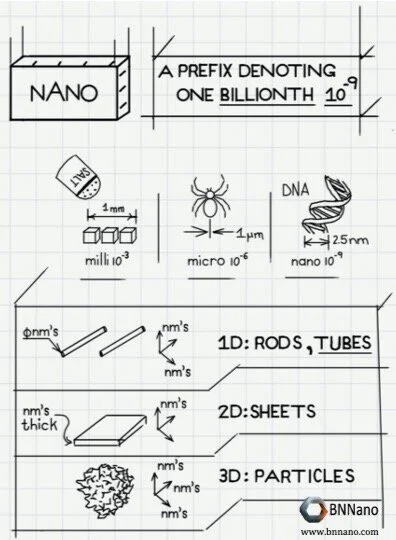 NANO
A PREFIX DENOTING
ONE BILLIONTH 10⁻⁹
SALT
1mm
milli 10⁻³
1µm
micro 10⁻⁶
DNA
2.5nm
nano 10⁻⁹
ϕnm's
nm's
nm's
1D: RODS, TUBES
nm's
thick
nm's
2D: SHEETS
nm's
nm's
nm's
3D: PARTICLES
BNNano
www.bnnano.com